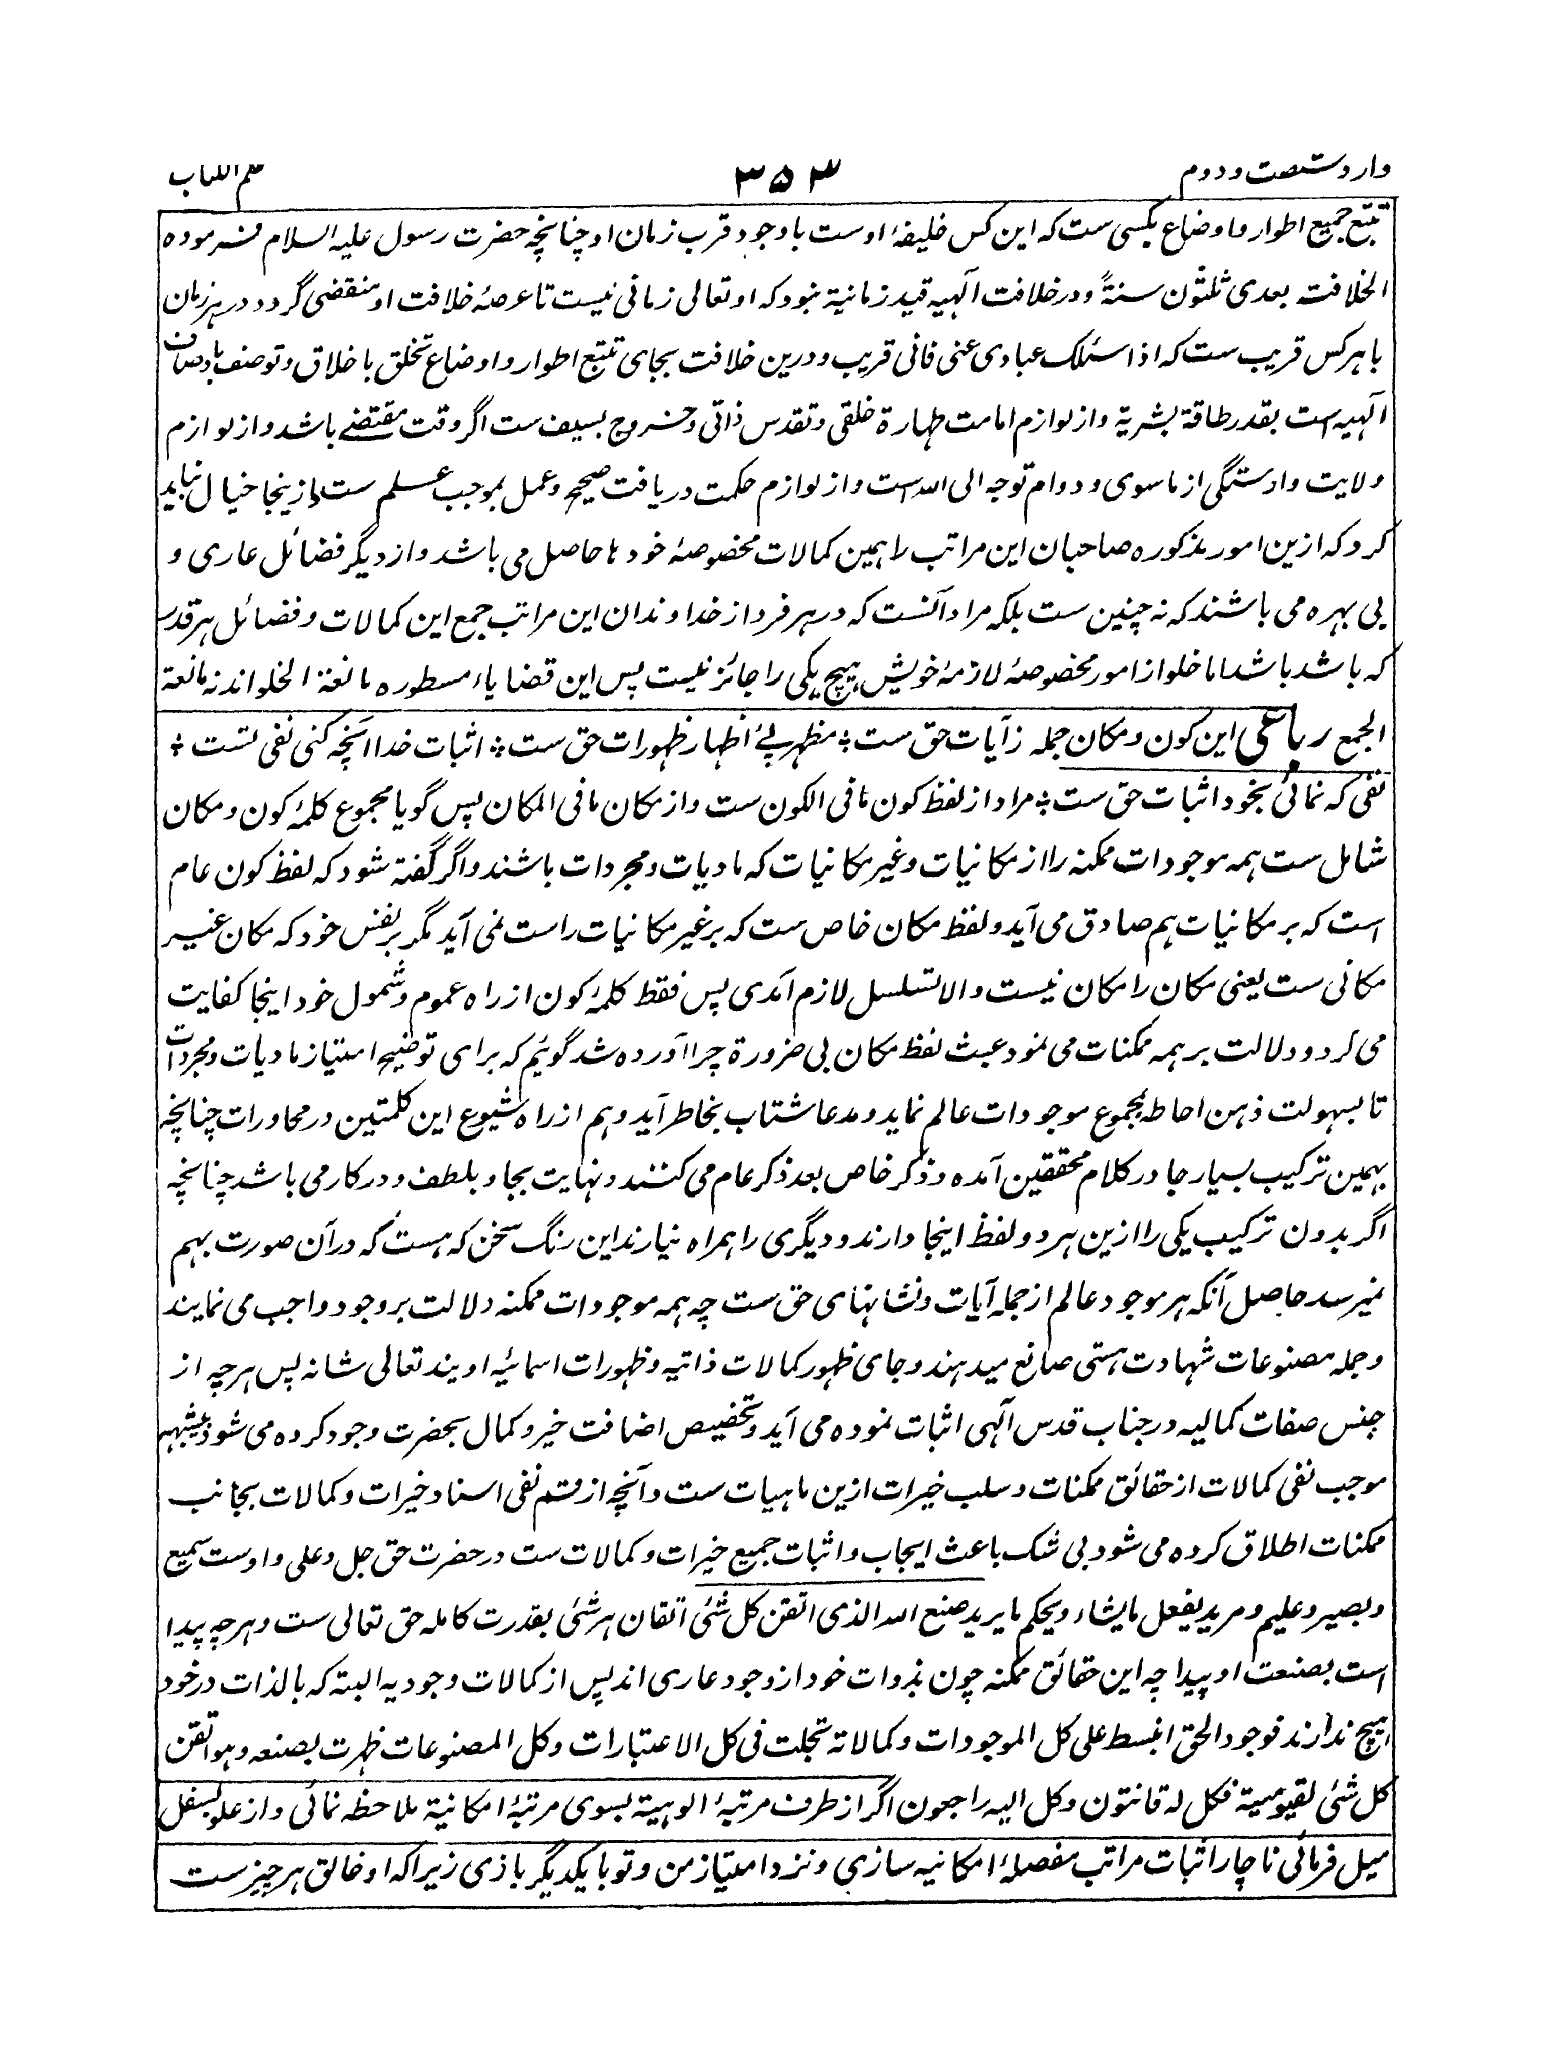 وارد شصت و دوم
۳۵۳
علم الکتاب
تتبع جمیع اطوار و اوضاع یکسی ست که این کس خلیفهٔ اوست با وجود قرب زمان او چنانچه حضرت رسول علیه السلام فرموده
الخلافت بعدی ثلثون سنةً و در خلافت آلهیه قید زمانیة نبود که او تعالی زمانی نیست تا عرصهٔ خلافت او منقضی گردد در هر زمان
با هر کس قریب ست که اذا سئلک عبادی عنی فانی قریب و درین خلافت بجای تتبع اطوار و اوضاع تخلق باخلاق و توصف باوصاف
آلهیه است بقدر طاقة بشریة و از لوازم امامت طهارة خلقی و تقدس ذاتی و خروج بسیف ست اگر وقت مقتضے باشد و از لوازم
ولایت وارستگی از ماسوی و دوام توجه الی الله است و از لوازم حکمت دریافت صحیح و عمل بموجب علم ست و ازینجا خیال نباید
کرد که ازین امور مذکوره صاحبان این مراتب را همین کمالات مخصوصهٔ خودها حاصل می باشد و از دیگر فضائل عاری و
بی بهره می باشند که نه چنین ست بلکه مراد آنست که در هر فرد از خداوندان این مراتب جمع این کمالات و فضائل هر قدر
که باشد باشد اما خلو از امور مخصوصهٔ لازمهٔ خویش هیچ یکی را جائز نیست پس این قضایاء مسطوره مانعة الخلو اند نه مانعة
الجمع رباعی این کون و مکان جمله ز آیات حق ست ؛ مظهر پئ اظهار ظهورات حق ست ؛ اثبات خدا آنچه کنی نفی تست ؛
نفی که نمائی بخود اثبات حق ست ؛ مراد از لفظ کون ما فی الکون ست و از مکان ما فی المکان پس گویا مجموع کلمهٔ کون و مکان
شامل ست همه موجودات ممکنه را از مکانیات و غیر مکانیات که مادیات و مجردات باشند و اگر گفته شود که لفظ کون عام
است که بر مکانیات هم صادق می آید و لفظ مکان خاص ست که بر غیر مکانیات راست نمی آید مگر بر نفس خود که مکان غیر
مکانی ست یعنی مکان را مکان نیست و الا تسلسل لازم آمدی پس فقط کلمهٔ کون از راه عموم و شمول خود اینجا کفایت
می کرد و دلالت بر همه ممکنات می نمود عبث لفظ مکان بی ضرورة چرا آورده شد گوئیم که برای توضیح امتیاز مادیات و مجردات
تا بسهولت ذهن احاطه مجموع موجودات عالم نماید و مدعا شتاب بخاطر آید و هم از راه شیوع این کلمتین در محاورات چنانچه
بهمین ترکیب بسیار جا در کلام محققین آمده و ذکر خاص بعد ذکر عام می کنند و نهایت بجا و بلطف و درکار می باشد چنانچه
اگر بدون ترکیب یکی را ازین هر دو لفظ اینجا دارند و دیگری را همراه نیارند این رنگ سخن که هست که در آن صورت بهم
نمیرسد حاصل آنکه هر موجود عالم از جمله آیات و نشانهای حق ست چه همه موجودات ممکنه دلالت بر وجود واجب می نمایند
و جمله مصنوعات شهادت هستی صانع میدهند و جای ظهور کمالات ذاتیه و ظهورات اسمائیه اویند تعالی شانه پس هر چه از
جنس صفات کمالیه در جناب قدس آلهی اثبات نموده می آید و تخصیص اضافت خیر و کمال بحضرت وجود کرده می شود بیشبهه
موجب نفی کمالات از حقائق ممکنات و سلب خیرات ازین ماهیات ست و آنچه از قسم نفی اسناد خیرات و کمالات بجانب
ممکنات اطلاق کرده می شود بی شک باعث ایجاب و اثبات جمیع خیرات و کمالات ست در حضرت حق جل و علی و اوست سمیع
و بصیر و علیم و مرید یفعل ما یشاء و یحکم ما یرید صنع الله الذی اتقن کل شئی اتقان هر شئی بقدرت کامله حق تعالی ست و هر چه پیدا
است بصنعت او پیدا چه این حقائق ممکنه چون بذوات خود از وجود عاری اند پس از کمالات وجودیه البته که بالذات در خود
هیچ ندارند فوجود الحق انبسط علی کل الموجودات و کمالاته تجلت فی کل الاعتبارات و کل المصنوعات ظهرت بصنعه و هو اتقن
کل شئی لقیومیة فکل له قانتون و کل الیه راجعون اگر از طرف مرتبهٔ الوهیة بسوی مرتبهٔ امکانیة ملاحظه نمائی و از علو بسفل
میل فرمائی ناچار اثبات مراتب مفصلهٔ امکانیه سازی و نرد امتیاز من و تو با یکدیگر بازی زیرا که او خالق هر چیز ست